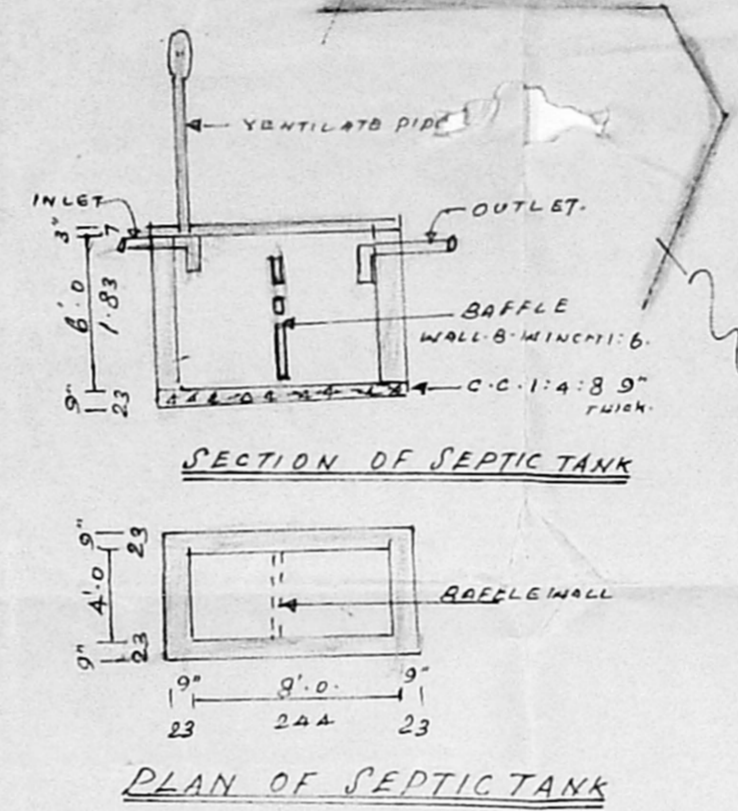 VENTILATE PIPE
INLET
OUTLET.
3" 7
6'.0 1.83
9" 23
BAFFLE
WALL.B.W IN CM 1:6.
C.C.1:4:8 9"
THICK.
SECTION OF SEPTIC TANK
9" 23
4'.0
9" 23
BAFFLE WALL
9" 8'.0. 9"
23 244 23
PLAN OF SEPTIC TANK